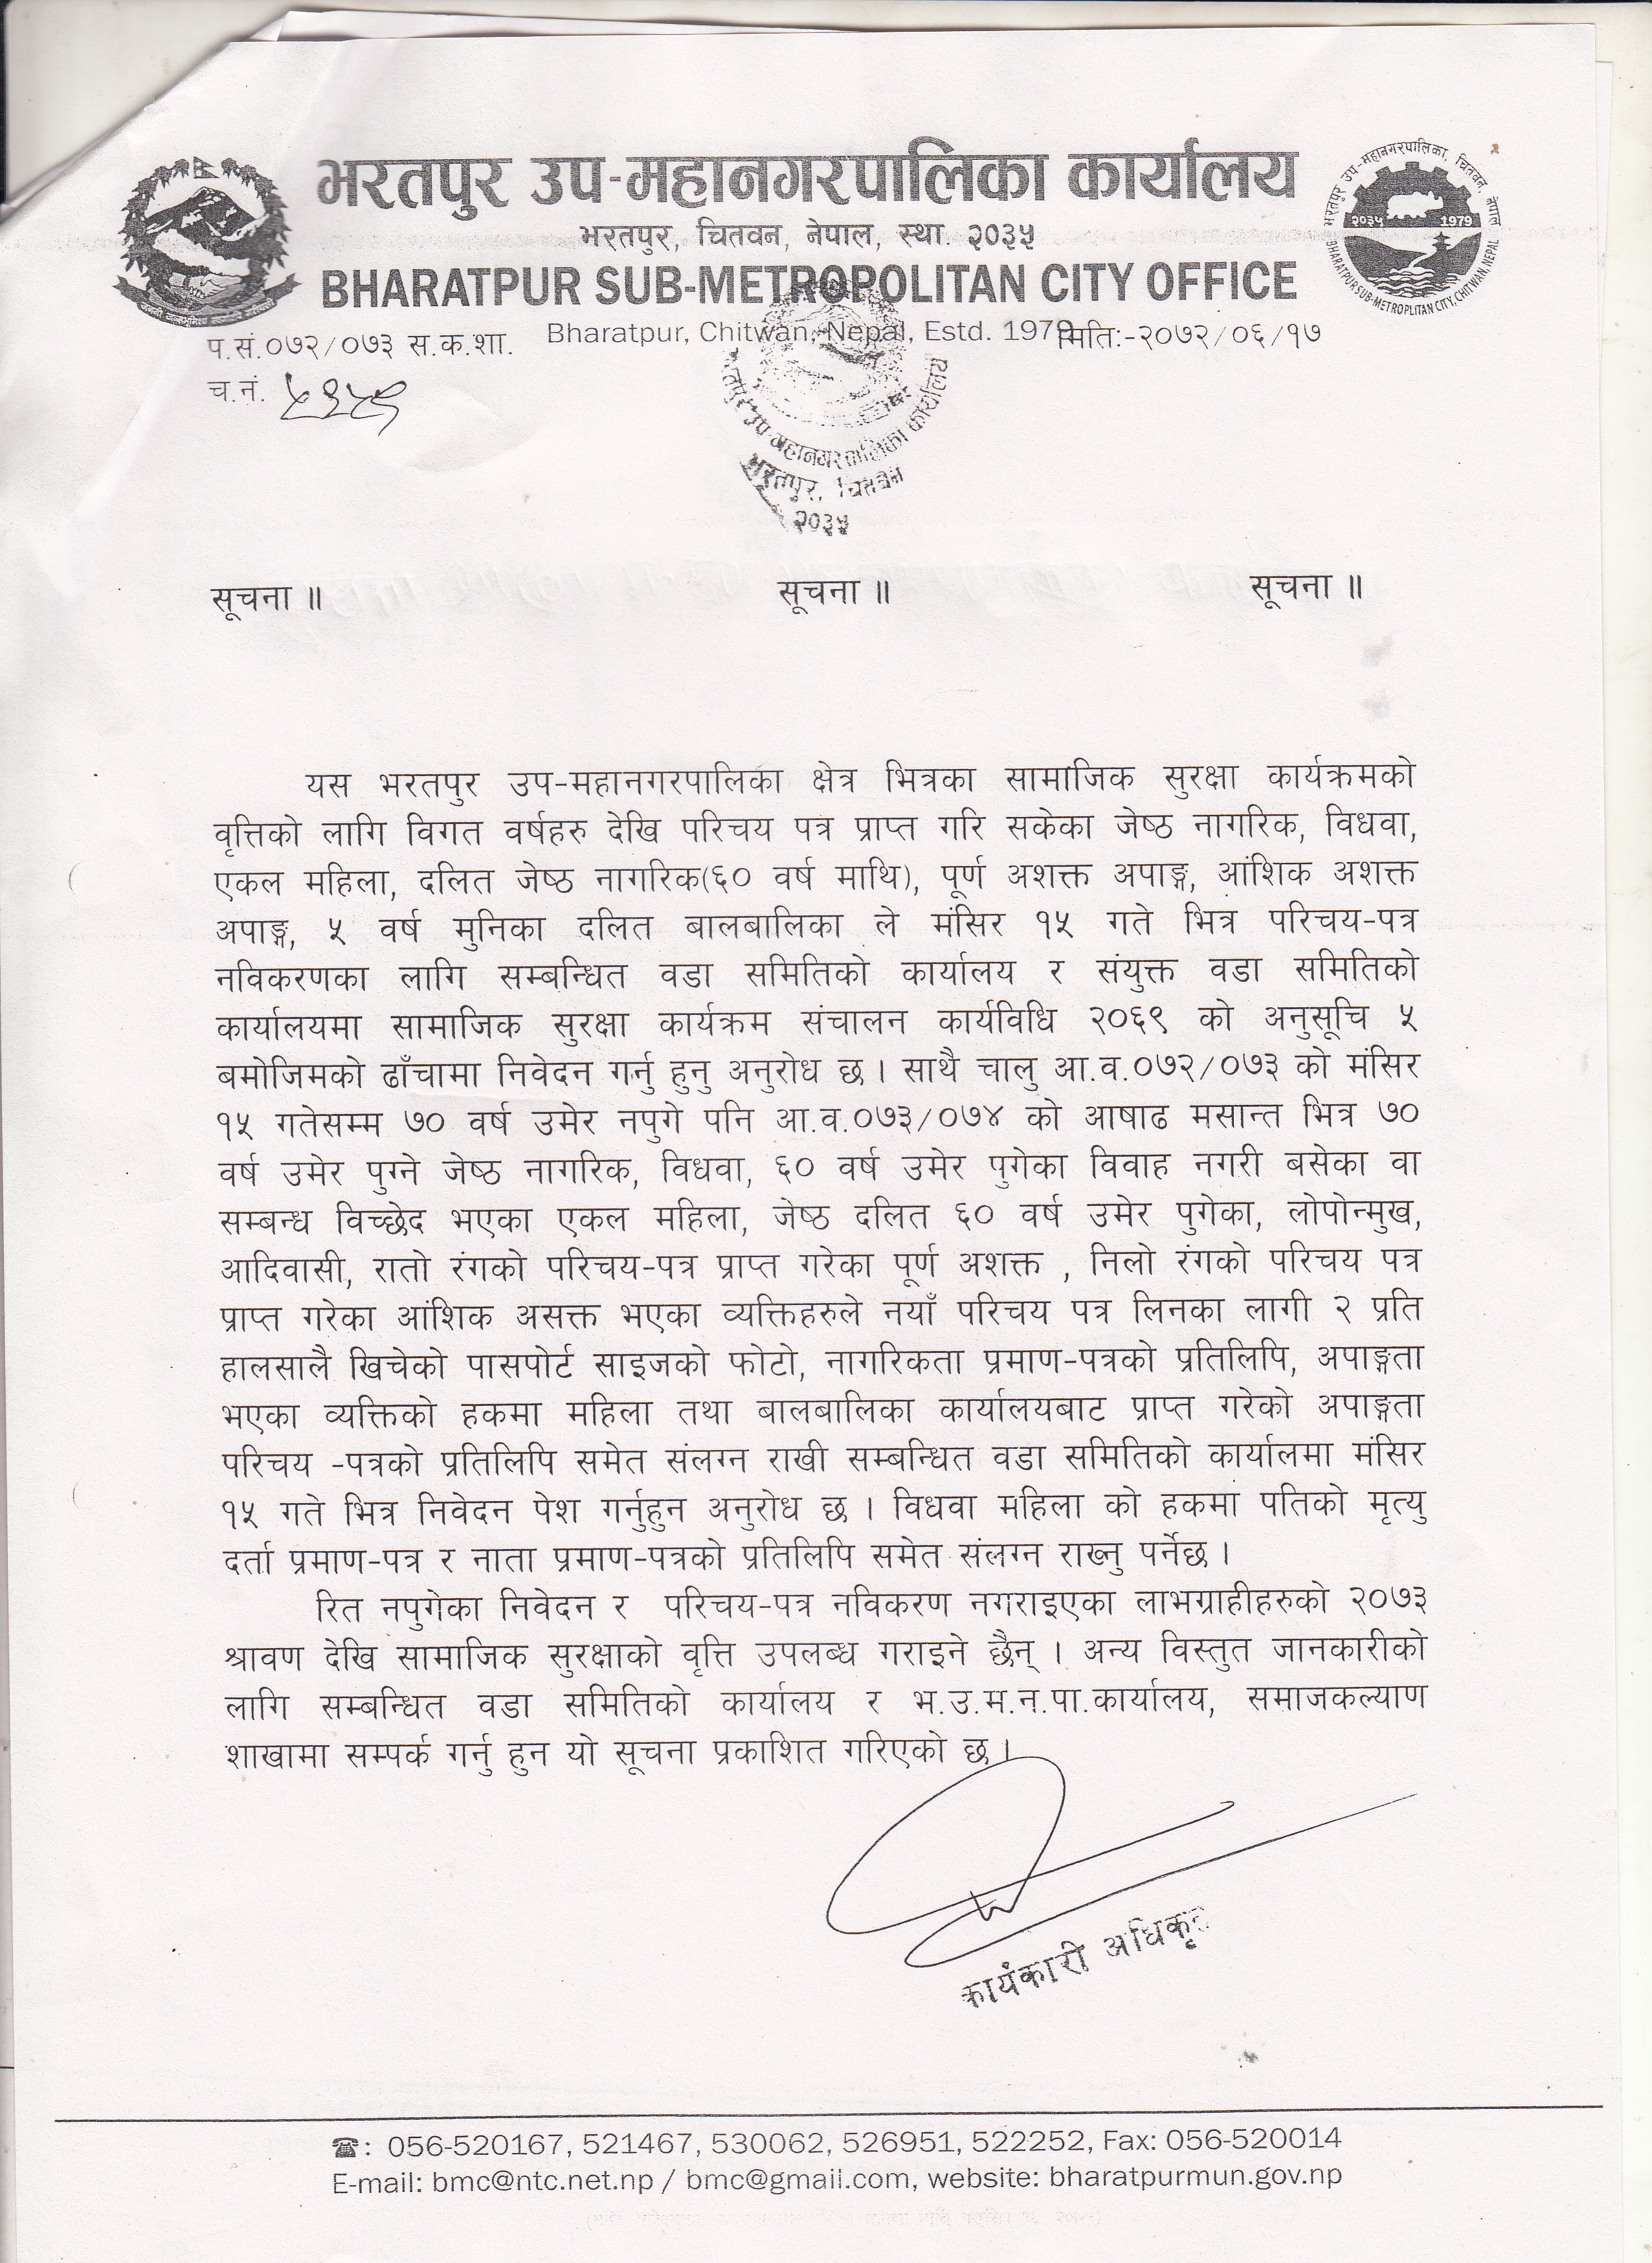 भरतपुर उप-महानगरपालिका कार्यालय
भरतपुर, चितवन, नेपाल, स्था. २०३५
BHARATPUR SUB-METROPOLITAN CITY OFFICE
Bharatpur, Chitwan, Nepal, Estd. 1979
भरतपुर उप-महानगरपालिका, चितवन, नेपाल
२०३५ 1979
BHARATPUR SUB-METROPLITAN CITY, CHITWAN, NEPAL
प.सं.०७२/०७३ स.क.शा. मिति:-२०७२/०६/१७
च.नं.
भरतपुर उप-महानगरपालिका कार्यालय
भरतपुर, चितवन
२०३५
सूचना ॥ सूचना ॥ सूचना ॥
यस भरतपुर उप-महानगरपालिका क्षेत्र भित्रका सामाजिक सुरक्षा कार्यक्रमको
वृत्तिको लागि विगत वर्षहरु देखि परिचय पत्र प्राप्त गरि सकेका जेष्ठ नागरिक, विधवा,
एकल महिला, दलित जेष्ठ नागरिक(६० वर्ष माथि), पूर्ण अशक्त अपाङ्ग, आंशिक अशक्त
अपाङ्ग, ५ वर्ष मुनिका दलित बालबालिका ले मंसिर १५ गते भित्र परिचय-पत्र
नविकरणका लागि सम्बन्धित वडा समितिको कार्यालय र संयुक्त वडा समितिको
कार्यालयमा सामाजिक सुरक्षा कार्यक्रम संचालन कार्यविधि २०६९ को अनुसूचि ५
बमोजिमको ढाँचामा निवेदन गर्नु हुनु अनुरोध छ । साथै चालु आ.व.०७२/०७३ को मंसिर
१५ गतेसम्म ७० वर्ष उमेर नपुगे पनि आ.व.०७३/०७४ को आषाढ मसान्त भित्र ७०
वर्ष उमेर पुग्ने जेष्ठ नागरिक, विधवा, ६० वर्ष उमेर पुगेका विवाह नगरी बसेका वा
सम्बन्ध विच्छेद भएका एकल महिला, जेष्ठ दलित ६० वर्ष उमेर पुगेका, लोपोन्मुख,
आदिवासी, रातो रंगको परिचय-पत्र प्राप्त गरेका पूर्ण अशक्त , निलो रंगको परिचय पत्र
प्राप्त गरेका आंशिक असक्त भएका व्यक्तिहरुले नयाँ परिचय पत्र लिनका लागी २ प्रति
हालसालै खिचेको पासपोर्ट साइजको फोटो, नागरिकता प्रमाण-पत्रको प्रतिलिपि, अपाङ्गता
भएका व्यक्तिको हकमा महिला तथा बालबालिका कार्यालयबाट प्राप्त गरेको अपाङ्गता
परिचय -पत्रको प्रतिलिपि समेत संलग्न राखी सम्बन्धित वडा समितिको कार्यालमा मंसिर
१५ गते भित्र निवेदन पेश गर्नुहुन अनुरोध छ । विधवा महिला को हकमा पतिको मृत्यु
दर्ता प्रमाण-पत्र र नाता प्रमाण-पत्रको प्रतिलिपि समेत संलग्न राख्नु पर्नेछ ।
रित नपुगेका निवेदन र परिचय-पत्र नविकरण नगराइएका लाभग्राहीहरुको २०७३
श्रावण देखि सामाजिक सुरक्षाको वृत्ति उपलब्ध गराइने छैन् । अन्य विस्तुत जानकारीको
लागि सम्बन्धित वडा समितिको कार्यालय र भ.उ.म.न.पा.कार्यालय, समाजकल्याण
शाखामा सम्पर्क गर्नु हुन यो सूचना प्रकाशित गरिएको छ ।
कार्यकारी अधिकृत
☎: 056-520167, 521467, 530062, 526951, 522252, Fax: 056-520014
E-mail: bmc@ntc.net.np / bmc@gmail.com, website: bharatpurmun.gov.np